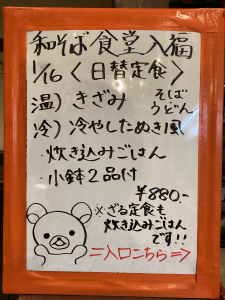 和そば食堂入福
1/16〈日替定食〉
温）きざみ そば うどん
冷）冷やしたぬき風
・炊き込みごはん
・小鉢2品付
¥880.-
※ざる定食も
炊き込みごはん
です!!
⇒入口こちら⇒